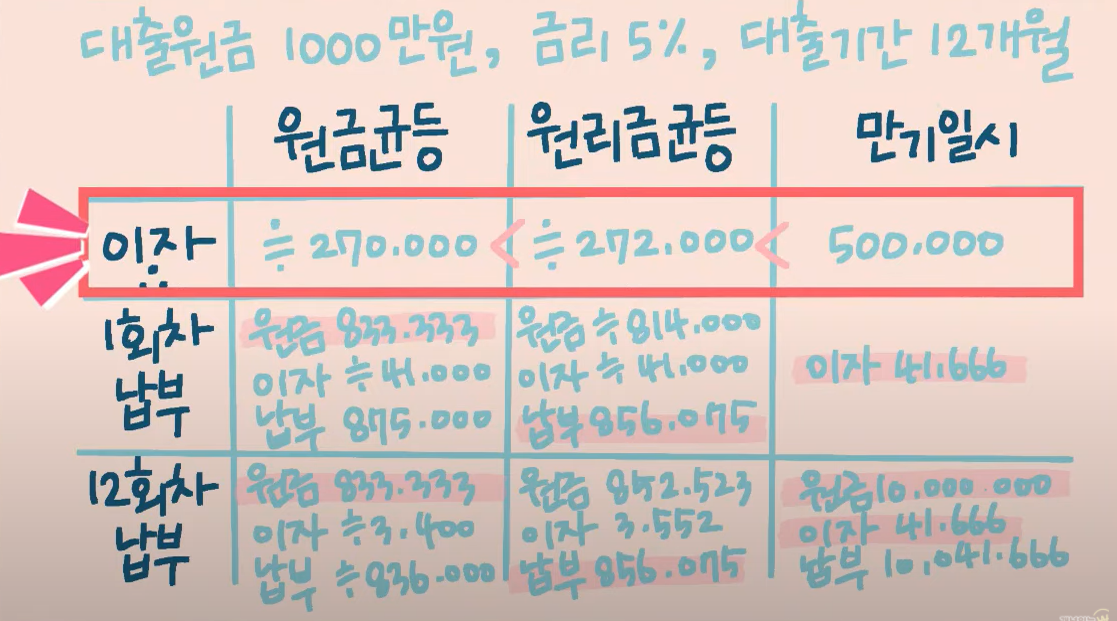 대출원금 1000만원, 금리 5%, 대출기간 12개월
원금균등 원리금균등 만기일시
이자 ≒ 270.000 < ≒ 272.000 < 500.000
1회차 납부
원금 833.333
이자 ≒ 41.000
납부 875.000
원금 ≒ 814.000
이자 ≒ 41.000
납부 856.075
이자 41.666
12회차 납부
원금 833.333
이자 ≒ 3.400
납부 ≒ 836.000
원금 852.523
이자 3.552
납부 856.075
원금 10.000.000
이자 41.666
납부 10,041.666